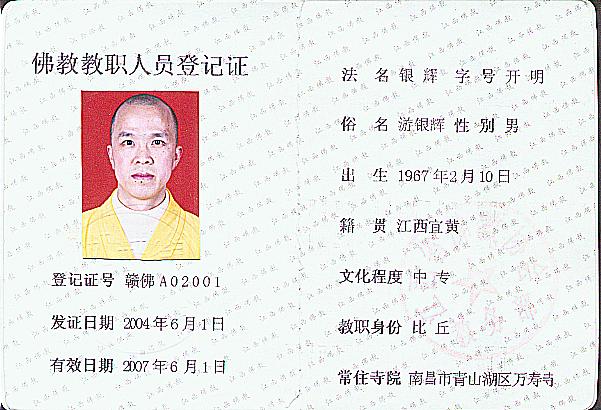 佛教教职人员登记证
登记证号 赣佛A02001
发证日期 2004年6月1日
有效日期 2007年6月1日
法 名 银 辉 字 号 开 明
俗 名 游银辉 性 别 男
出 生 1967年2月10日
籍 贯 江西宜黄
文化程度 中 专
教职身份 比 丘
常住寺院 南昌市青山湖区万寿寺